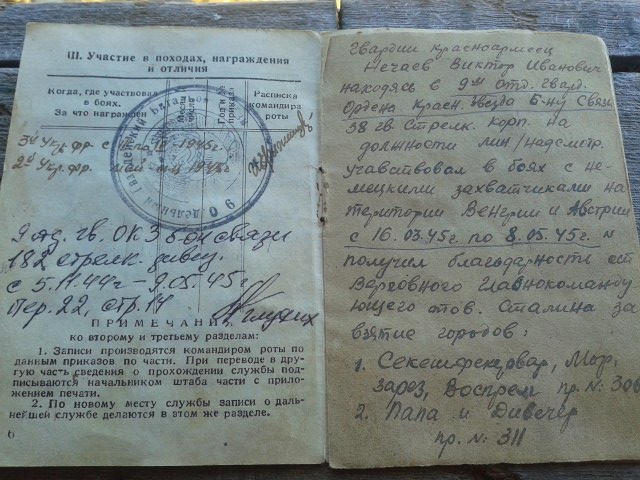 III. Участие в походах, награждения
и отличия
Когда, где участвовал
в боях.
За что награжден
Расписка
командира
роты
3й Укр. фр. с 1945г
2й Укр. фр. май м-ц 1945г
9 отд. гв. ОКЗ б-он связи
182 стрелк. дивиз.
с 5.11.44г - 9.05.45г.
пер. 22, стр. 14
ПРИМЕЧАНИЯ
ко второму и третьему разделам:
1. Записи производятся командиром роты по
данным приказов по части. При переводе в дру-
гую часть сведения о прохождении службы под-
писываются начальником штаба части с прило-
жением печати.
2. По новому месту службы записи о даль-
нейшей службе делаются в этом же разделе.
6
Гвардии красноармеец
Нечаев Виктор Иванович
находясь в 9ом отд. гвард.
Ордена Красн. Звезда б-ну Связи
38 гв. Стрелк. корп. на
должности лин/надсмотр.
учавствовал в боях с не-
мецкими захватчиками на
територии Венгрии и Австрии
с 16.03.45г. по 8.05.45г. и
получил благодарности от
Верховного Главнокоманду-
ющего тов. Сталина за
взятие городов:
1. Секешфехервар, Мор,
зарез, Воспрем пр. №: 306
2. Папа и Дивечер
пр. №: 311